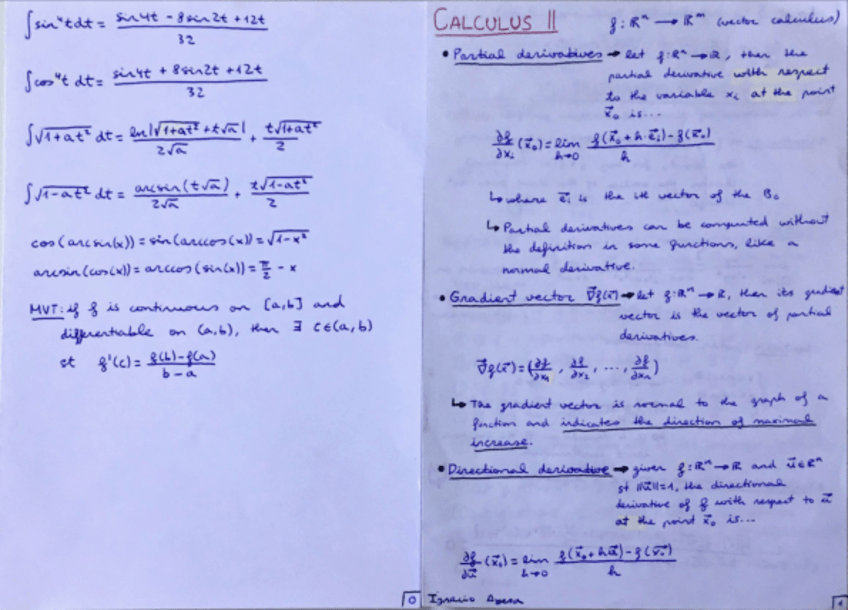 ∫sin⁴t dt = (sin4t - 8sin2t + 12t)/32
∫cos⁴t dt = (sin4t + 8sin2t + 12t)/32
∫√(1+at²) dt = ln|√(1+at²) + t√a|/(2√a) + t√(1+at²)/2
∫√(1-at²) dt = arcsin(t√a)/(2√a) + t√(1-at²)/2
cos(arcsin(x)) = sin(arccos(x)) = √(1-x²)
arcsin(cos(x)) = arccos(sin(x)) = π/2 - x
MVT: if f is continuous on [a,b] and
differentiable on (a,b), then ∃ c∈(a,b)
st f'(c) = (f(b)-f(a))/(b-a)
0
CALCULUS II f: ℝⁿ → ℝᵐ (vector calculus)
• Partial derivatives → let f: ℝⁿ → ℝ, then the
partial derivative with respect
to the variable xᵢ at the point
x⃗₀ is...
∂f/∂xᵢ (x⃗₀) = lim h→0 (f(x⃗₀ + h·e⃗ᵢ) - f(x⃗₀))/h
↳ where e⃗ᵢ is the ith vector of the Bc
↳ Partial derivatives can be computed without
the definition in some functions, like a
normal derivative.
• Gradient vector ∇⃗f(x⃗) → let f: ℝⁿ → ℝ, then its gradient
vector is the vector of partial
derivatives.
∇⃗f(x⃗) = (∂f/∂x₁, ∂f/∂x₂, ..., ∂f/∂xₙ)
↳ The gradient vector is normal to the graph of a
function and indicates the direction of maximal
increase.
• Directional derivative → given f: ℝⁿ → ℝ and u⃗∈ℝⁿ
st ||u⃗||=1, the directional
derivative of f with respect to u⃗
at the point x⃗₀ is...
∂f/∂u⃗ (x⃗₀) = lim h→0 (f(x⃗₀ + hu⃗) - f(x⃗₀))/h
Ignacio
1